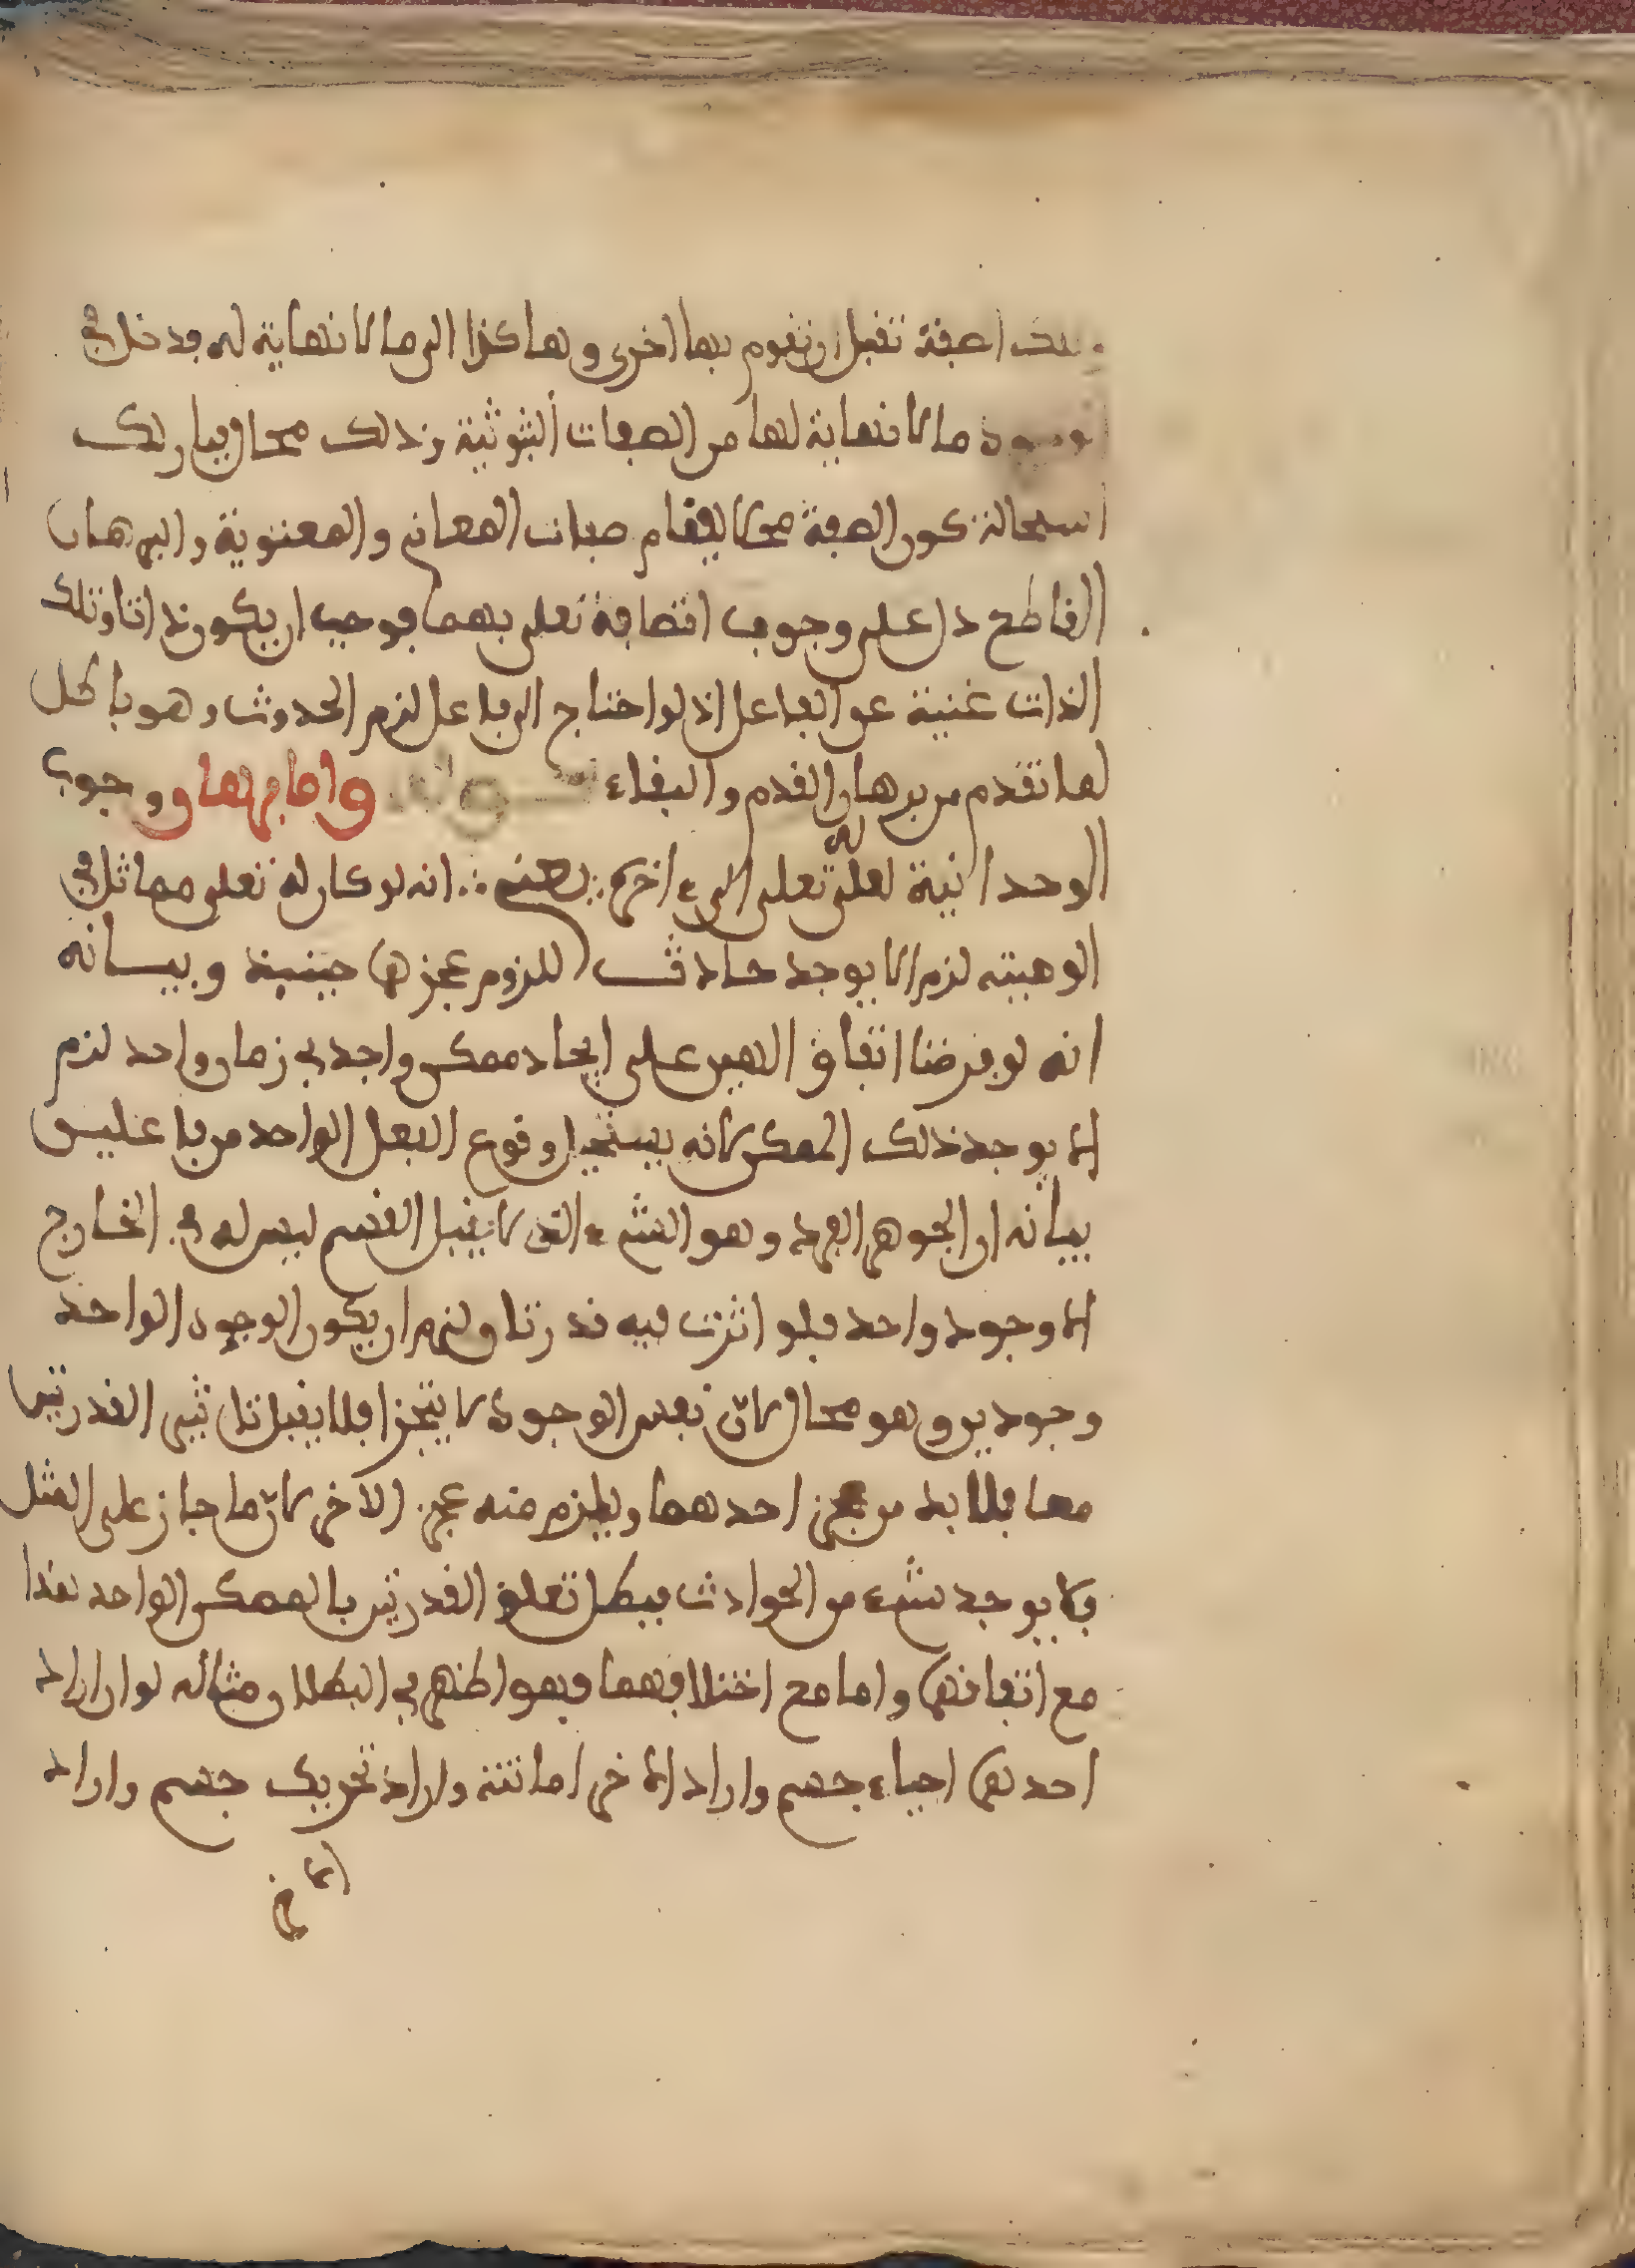 صفة تقبل ان تقوم بها اخرى وهاكذا الى ما لا نهاية له فدخل في
الوجود ما لا نهاية لها من الصفات الثبوتية وذلك محال وبيان لك
استحالة كون الصفة محلا لقيام صفات المعاني والمعنوية والبرهان
القاطع دل على وجوب اتصافه تعلى بهما فوجب ان يكون ذاتا وتلك
الذات غنية عن الفاعل اذ لو احتاج الى فاعل لزم الحدوث وهو باطل
لما تقدم من برهان القدم والبقاء واما برهان وجوب
الوحدانية لله تعلى الى ءاخره يعني انه لو كان له تعلى مماثل في
الوهيته لزم الا يوجد حادث للزوم عجزهما حينيذ وبيانه
انه لو فرضنا اتفاق الهين على ايجاد ممكن واحد في زمان واحد لزم
الا يوجد ذلك الممكن لانه يستحيل وقوع الفعل الواحد من فاعلين
بيانه ان الجوهر الفرد وهو الشيء الذي لا يقبل القسم ليس له في الخارج
الا وجود واحد فلو اثرت فيه قدرتان لزم ان يكون الوجود الواحد
وجودين وهو محال لان نفس الوجود لا يتجزا فلا يقبل تاثير القدرتين
معا فلا بد من عجز احدهما ويلزم منه عجز الاخر لان ما جاز على المثل
فلا يوجد شيء من الحوادث فبطل تعلق القدرتين بالممكن الواحد هذا
مع اتفاقهما واما مع اختلافهما فهو اظهر في البطلان مثاله لو اراد
احدهما احياء جسم واراد الاخر اماتته واراد تحريك جسم واراد
الاخر